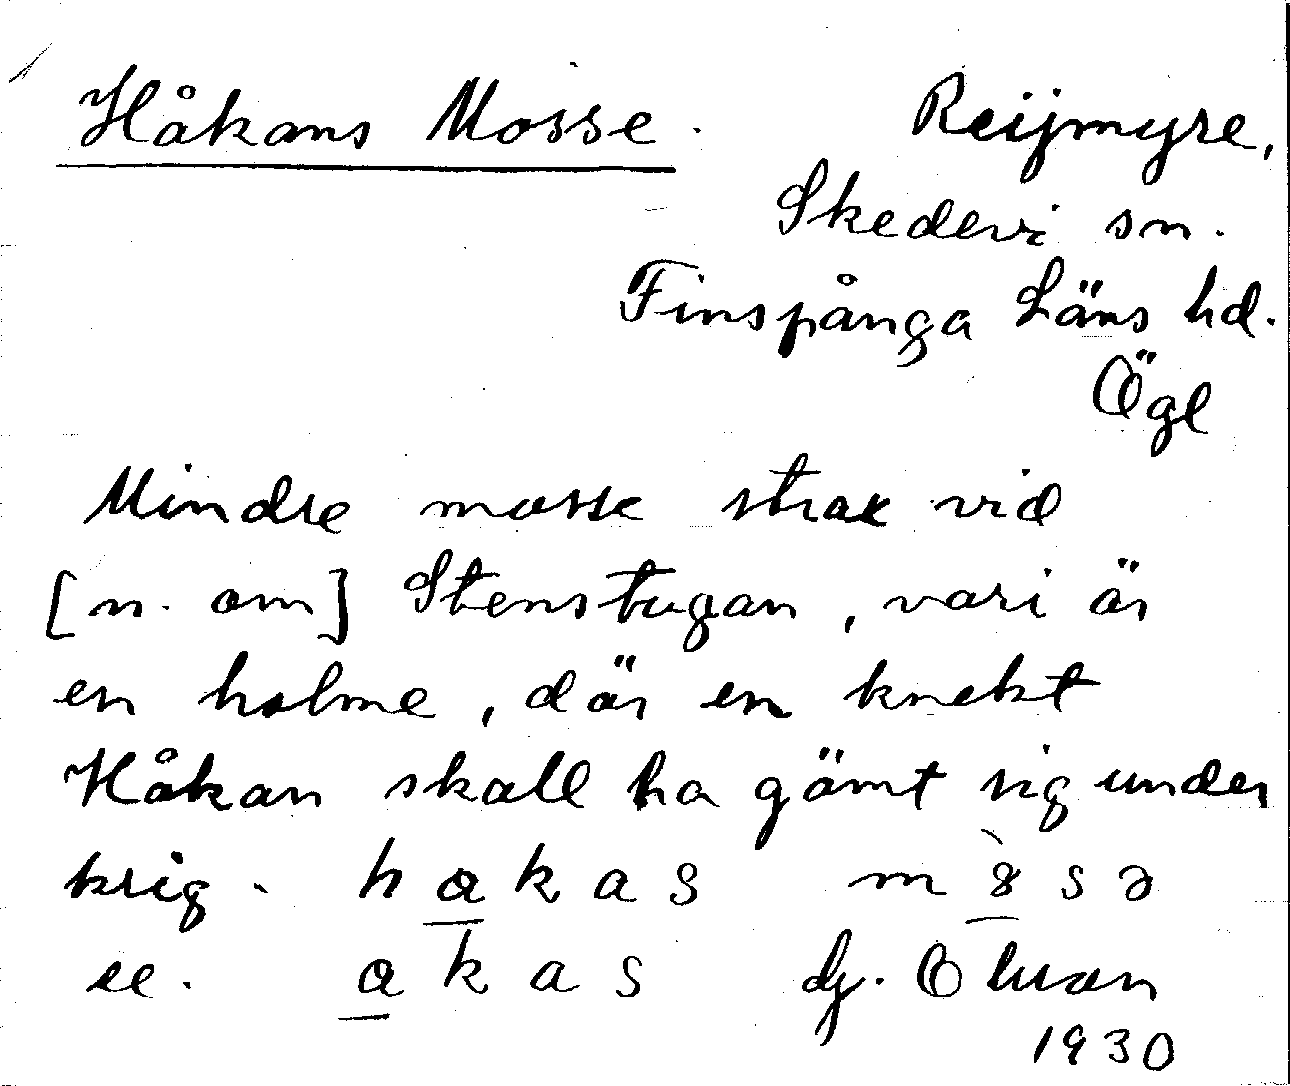 Håkans Mosse. Reijmyre,
Skedevi sn.
Finspånga Läns hd.
Ögl
Mindre mosse strax vid
[n. om] Stenstugan, vari är
en holme, där en knekt
Håkan skall ha gömt sig under
krig. hakas
akas
1930